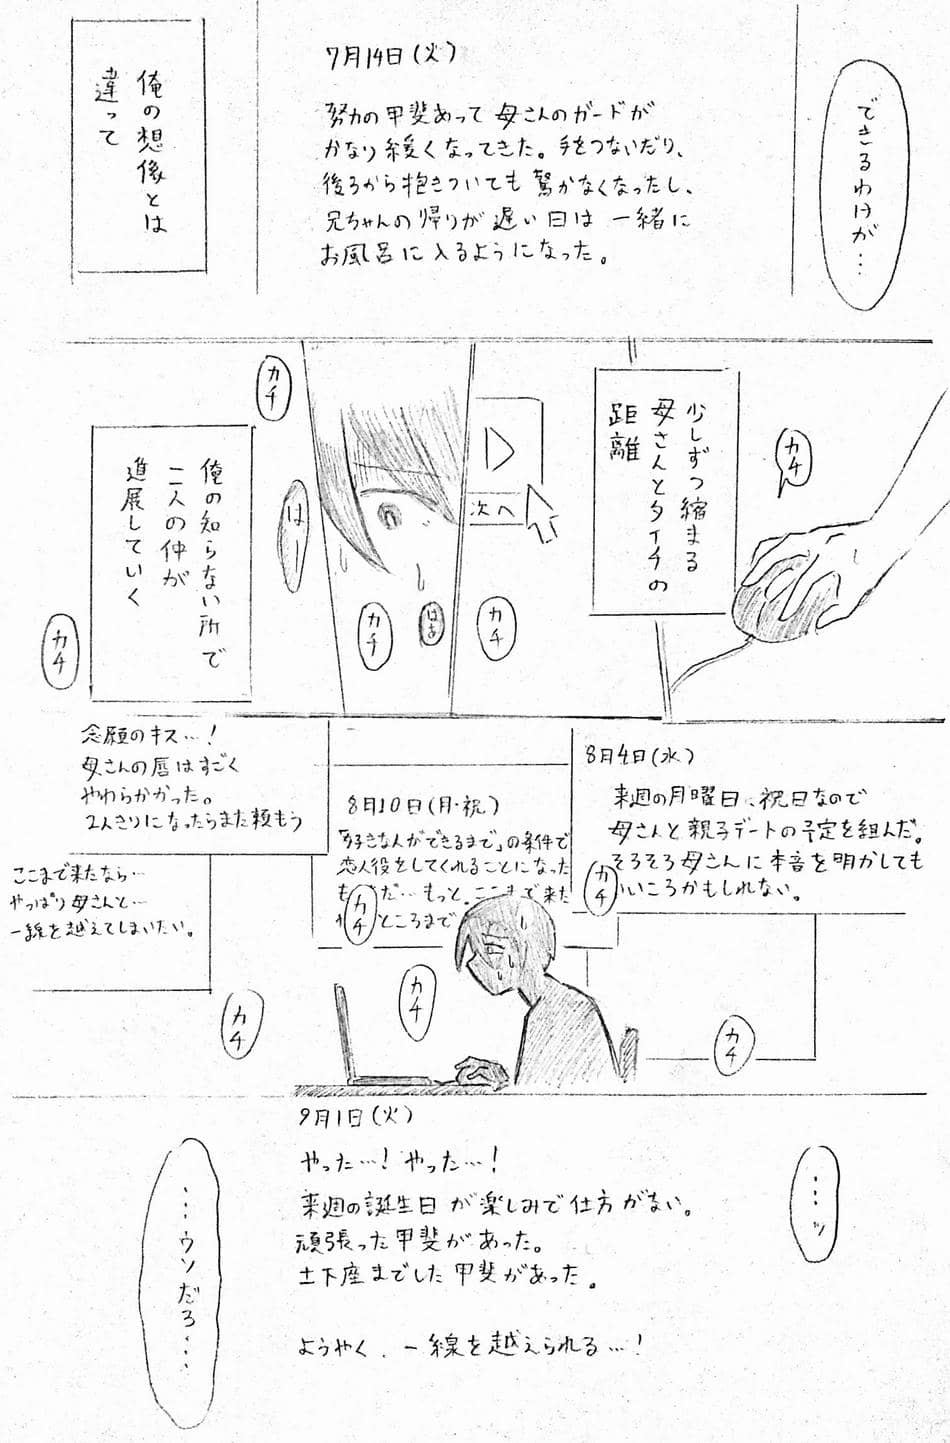 できるわけが…
7月14日(火)
努力の甲斐あって母さんのガードが
かなり緩くなってきた。手をつないだり、
後ろから抱きついても驚かなくなったし、
兄ちゃんの帰りが遅い日は一緒に
お風呂に入るようになった。
俺の想像とは
違って
カチ
少しずつ縮まる
母さんとタイチの
距離
次へ
カチ
カチ
はー
カチ
はぁ
俺の知らない所で
二人の仲が
進展していく
カチ
8月4日(水)
来週の月曜日、祝日なので
母さんと親子デートの予定を組んだ。
そろそろ母さんに本音を明かしても
いいころかもしれない。
カチ
8月10日(月・祝)
「好きな人ができるまで」の条件で
恋人役をしてくれることになった
も だ…もっと。ここまで来た
ところまで
カチ
念願のキス…!
母さんの唇はすごく
やわらかかった。
2人きりになったらまた頼もう
ここまで来たなら…
やっぱり母さんと…
一線を越えてしまいたい。
カチ
カチ
カチ
…ッ
9月1日(火)
やった…!やった…!
来週の誕生日が楽しみで仕方がない。
頑張った甲斐があった。
土下座までした甲斐があった。
ようやく、一線を越えられる…!
…ウソだろ…